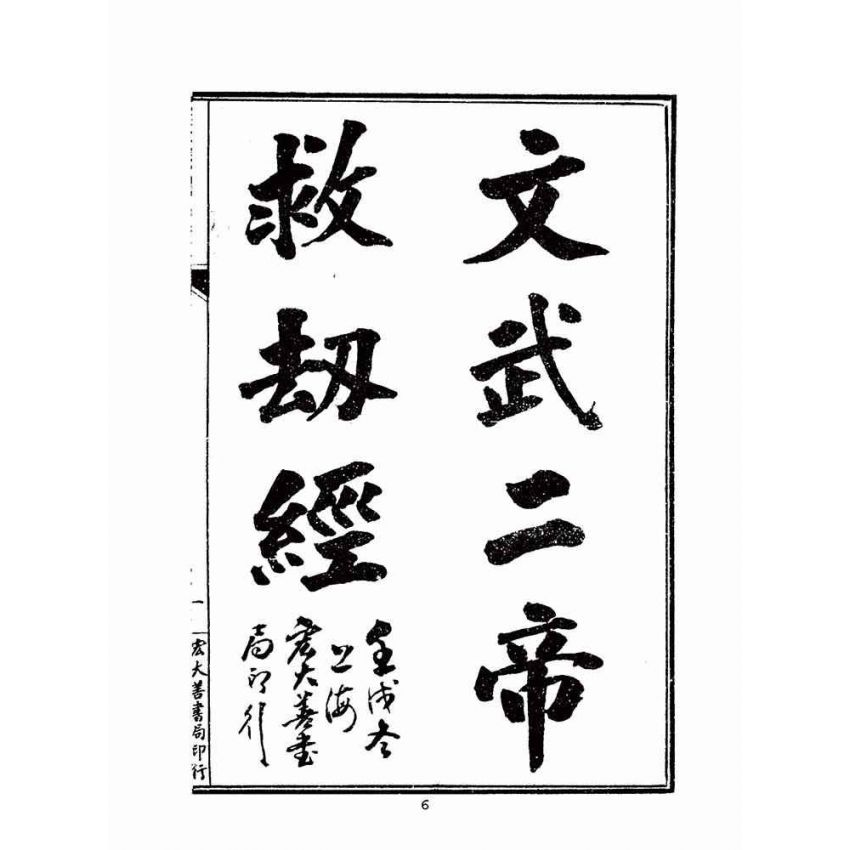 文武二帝
救劫經
壬戌冬
上海
宏大善書
局印行
一
宏大善書局印行
6